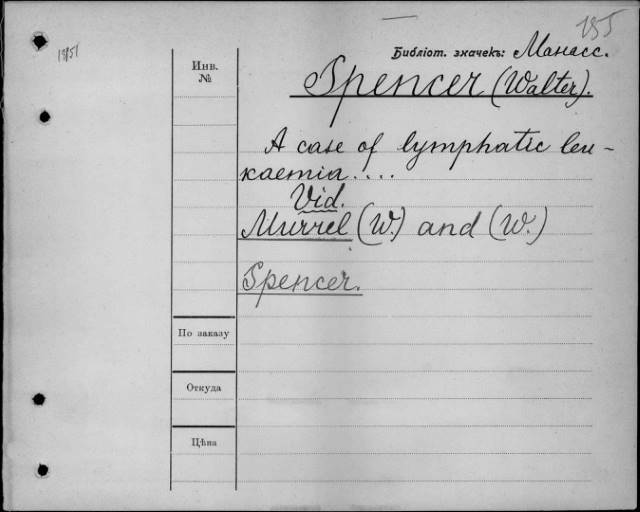 155
Библіот. значекъ: Манасс.
Инв.
№
Spencer (Walter).
A case of lymphatic leu-
kaemia....
Vid.
Murrel (W.) and (W.)
Spencer.
По заказу
Откуда
Цѣна